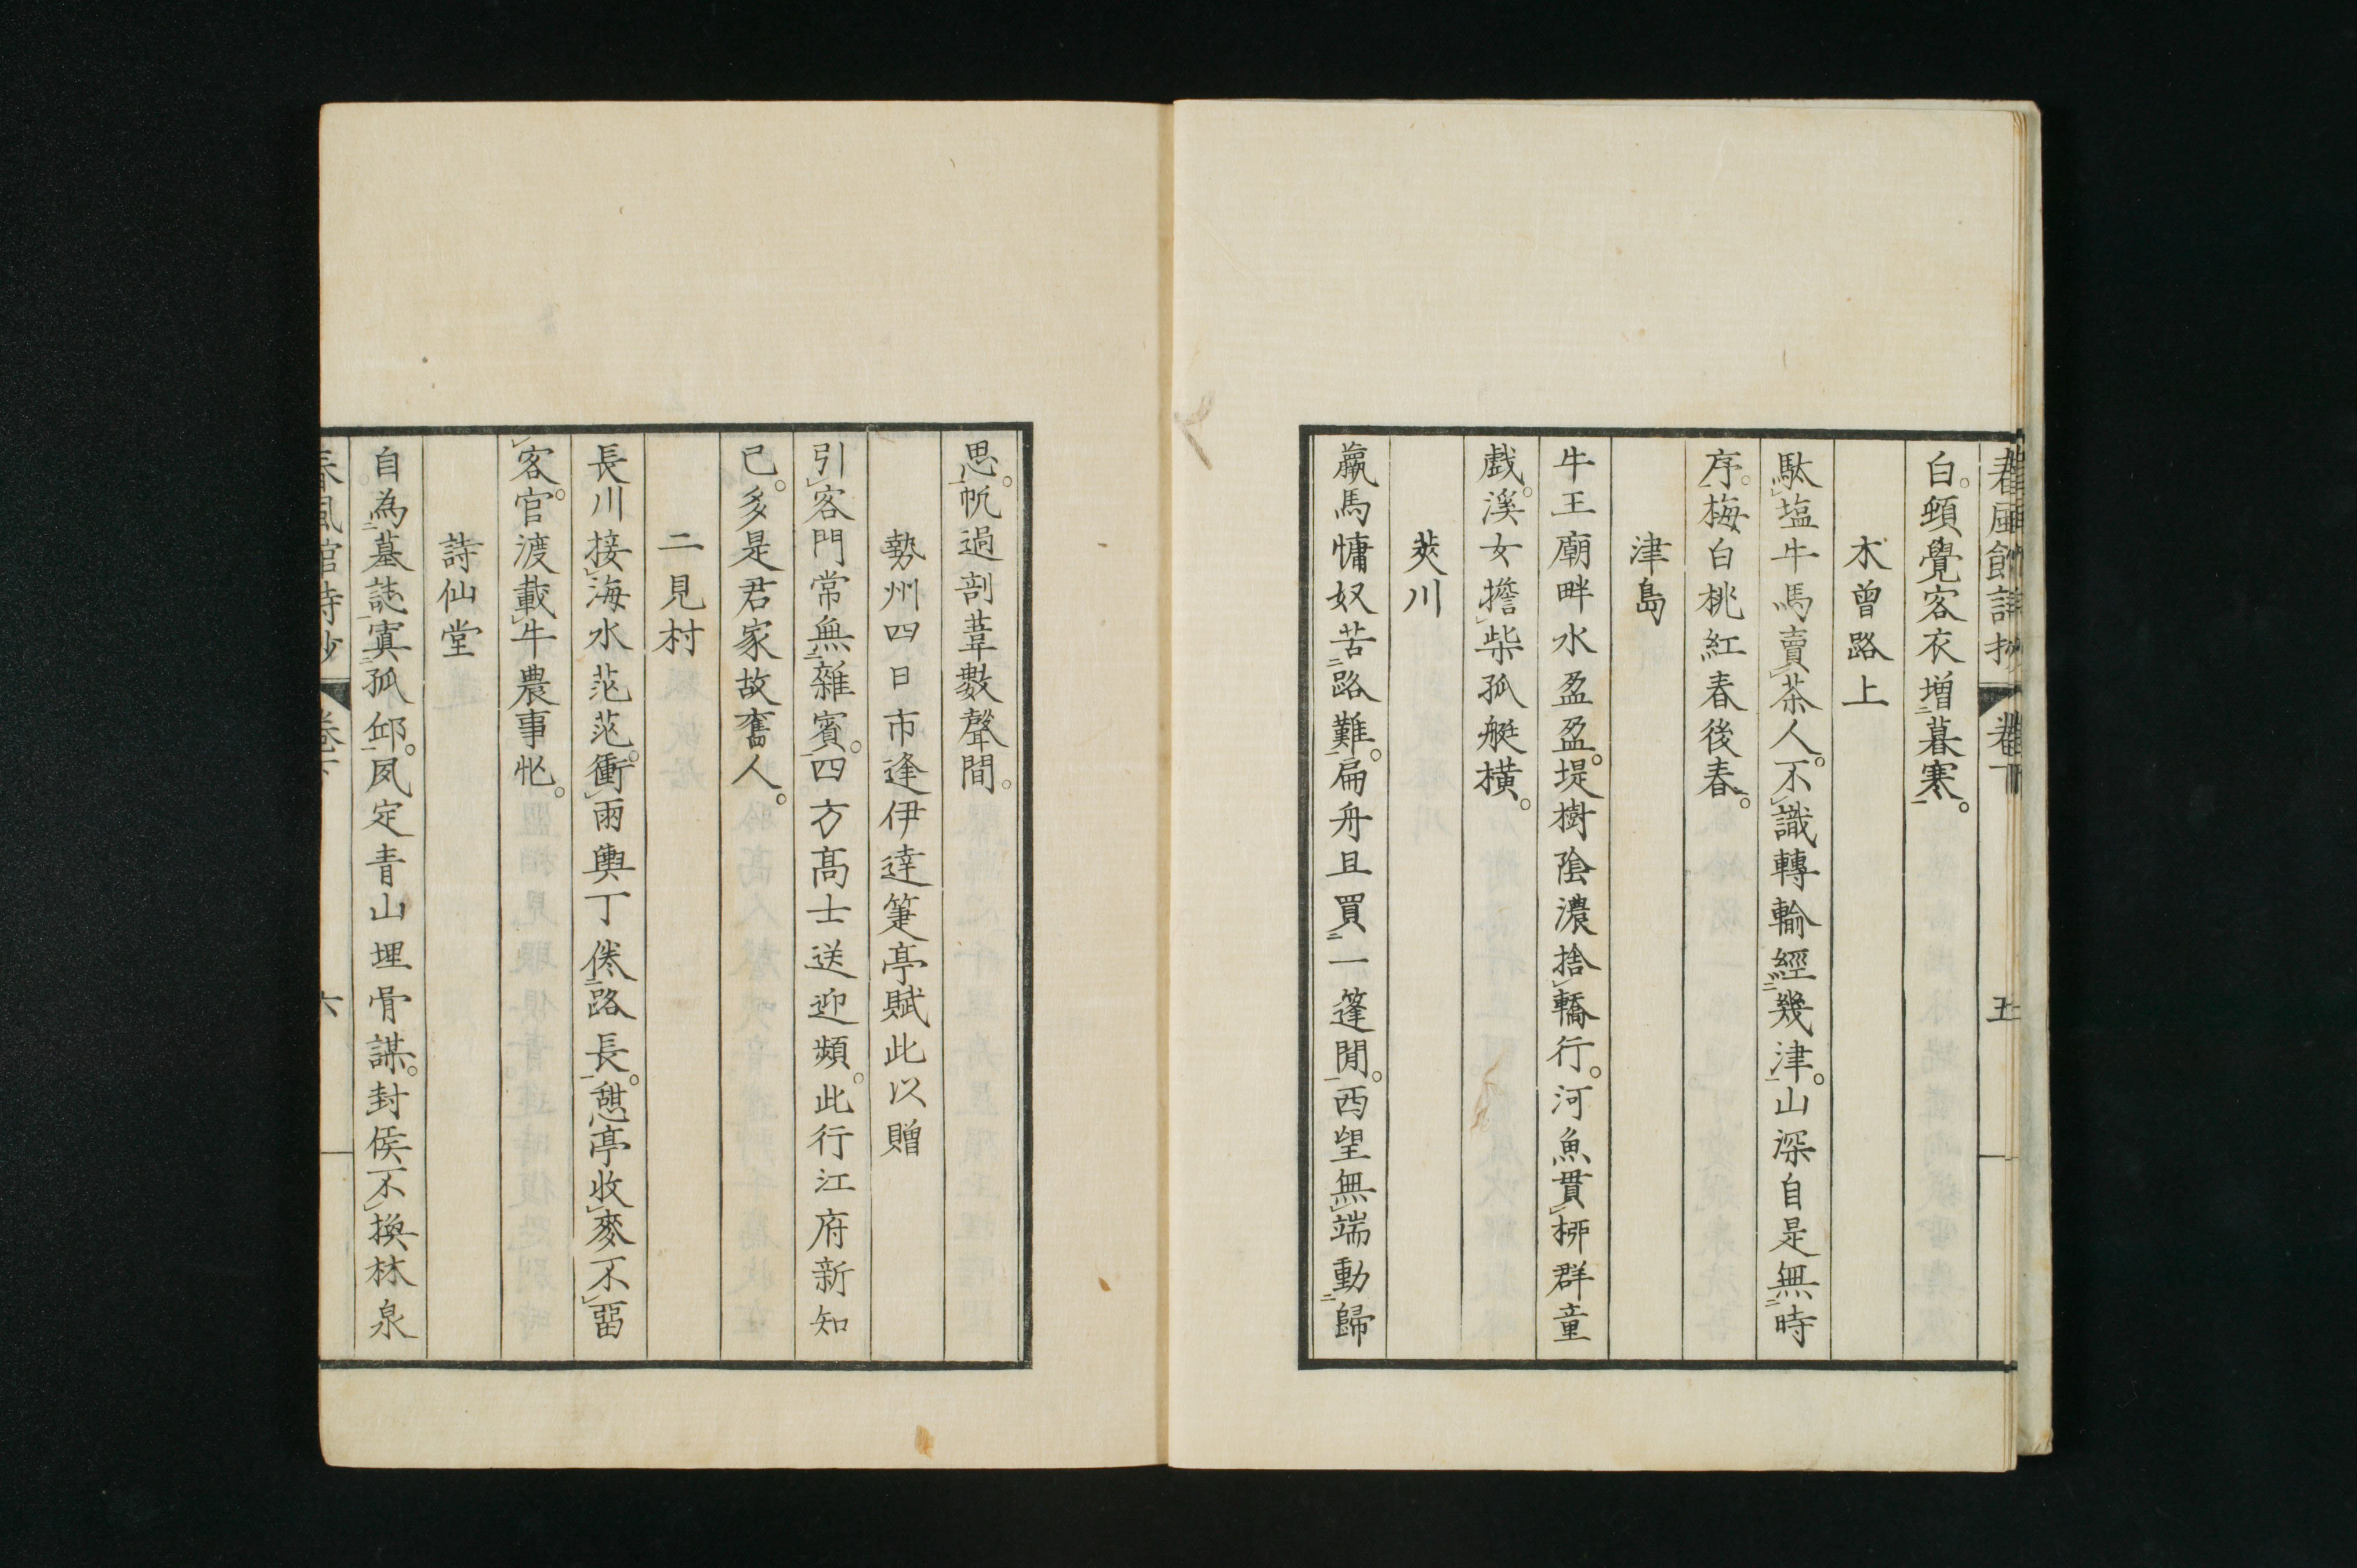 白。頓覺客衣増暮寒。
木曽路上
駄塩牛馬賣茶人。不識轉輸經幾津。山深自是無時
序。梅白桃紅春後春。
津島
牛王廟畔水盈盈。堤樹陰濃捨轎行。河魚貫柳群童
戲。溪女擔柴孤艇橫。
莢川
羸馬慵奴苦路難。扁舟且買一篷閒。西望無端動歸
思。帆過剖葦數聲間。
勢州四日市逢伊達篴亭賦此以贈
引客門常無雜賓。四方高士送迎頻。此行江府新知
己。多是君家故舊人。
二見村
長川接海水茫茫。衝雨輿丁倦路長。憩亭收麥不留
客。官渡載牛農事忙。
詩仙堂
自為墓誌寘孤邱。夙定青山埋骨謀。封侯不換林泉
春風館詩抄 卷下 六